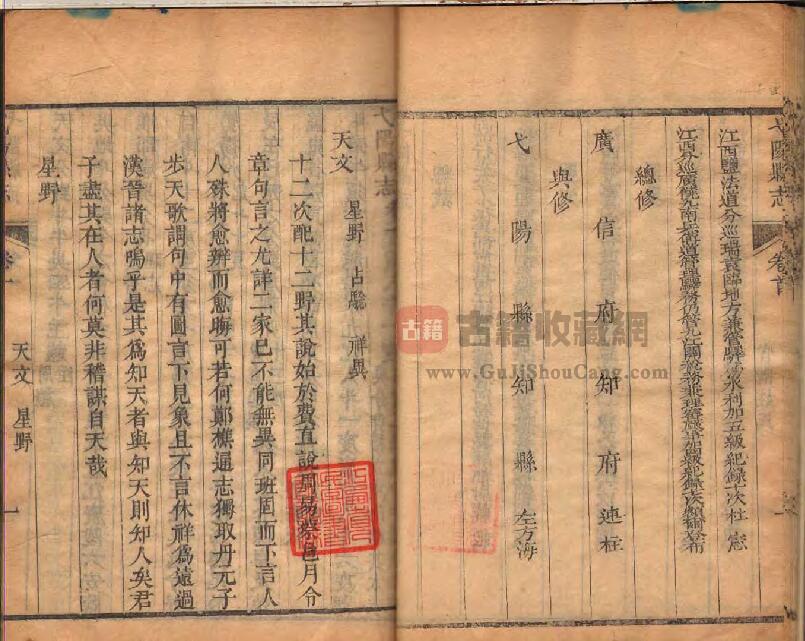 江西鹽法道分巡瑞袁臨地方兼管驛傳水利加五級紀錄十次杜憲
總修
廣信府知府連柱
與修
弋陽縣知縣左方海
弋陽縣志
卷首
弋陽縣志
天文 星野 占驗 祥異
十二次配十二野其說始於費直說周易蔡邕月令
章句言之尤詳二家已不能無異同班固而下言人
人殊將愈辨而愈晦可若何鄭樵通志獨取丹元子
步天歌謂句中有圖言下見象且不言休祥爲遠過
漢晉諸志嗚乎是其爲知天者與知天則知人矣君
子盡其在人者何莫非稽謀自天哉
星野
卷一
天文 星野
一
古籍
古籍收藏網
www.GuJiShouCang.com